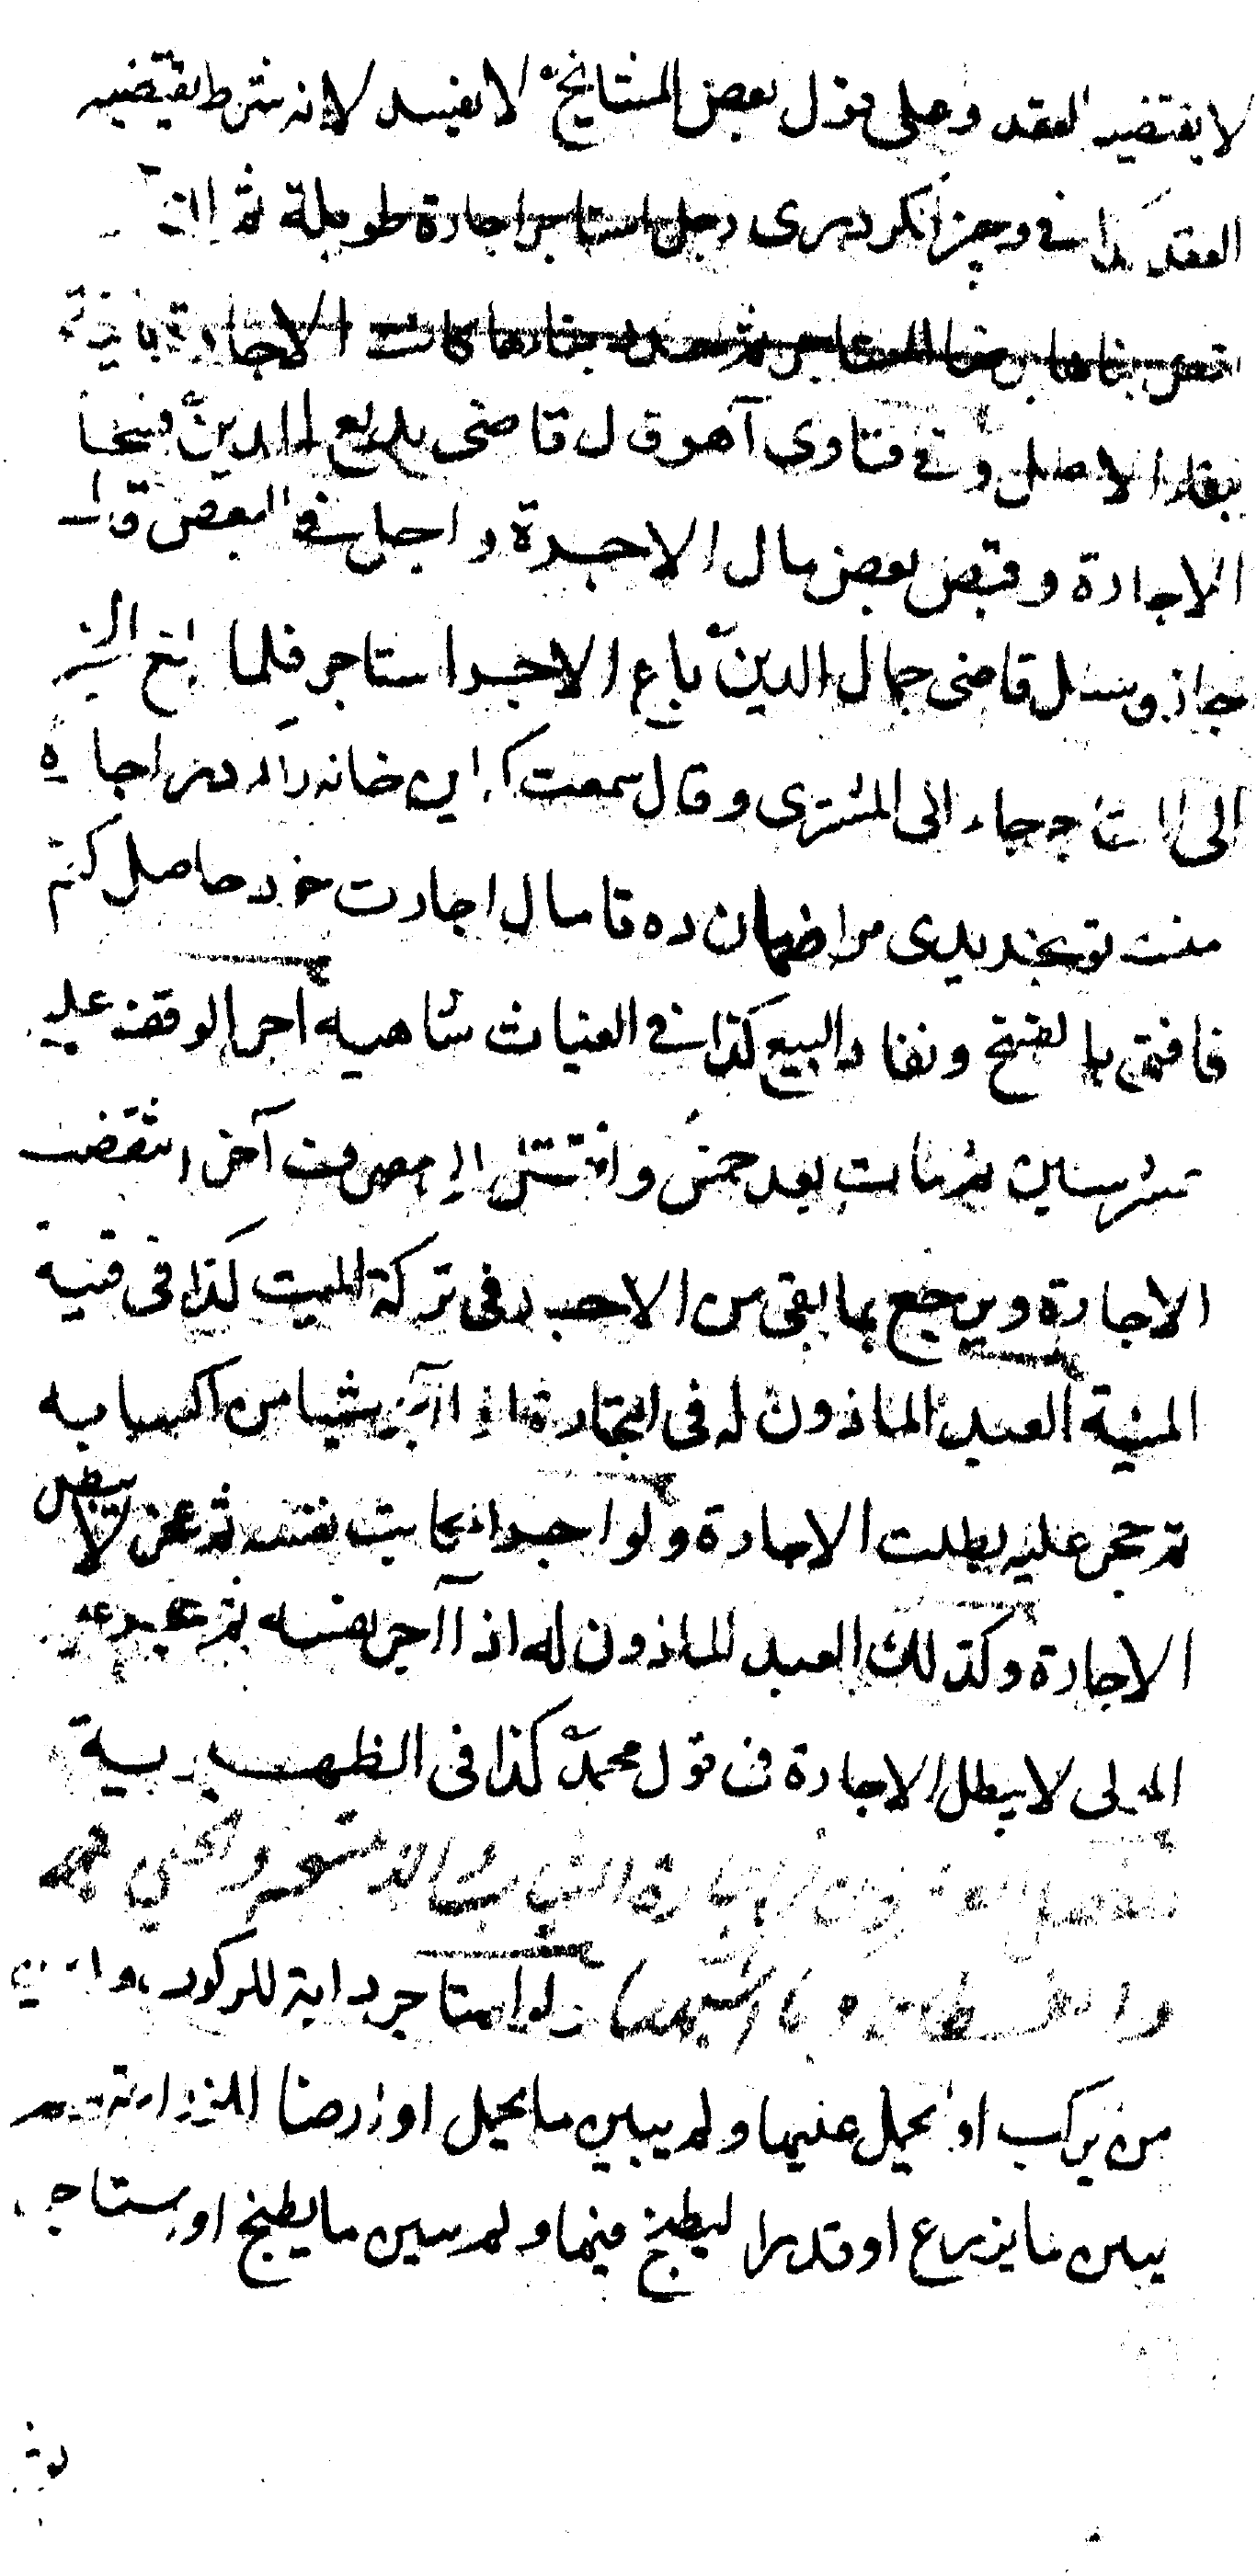 لا يقتضيه العقد وعلى قول بعض المشايخ لا يفسد لانه شرط يقتضيه
العقد كذا فى وجيز الكردرى رجل استاجر اجارة طويلة ثم
نقض بناها كانت الاجارة باقية
ببقاء الاصل وفى فتاوى آهو قال قاضى بديع الدين فسخا
الاجارة وقبض بعض مال الاجرة واجل فى البعض قال
جاز وسئل قاضى جمال الدين باع الاجر استاجر فلما بلغ الخبر
الى المستاجر جاء الى المشترى وقال سمعت كه اين خانه را كه در اجاره
منست تو بخريدى مرا ضمان ده تا مال اجارت خود حاصل كنم
فافتى بالفسخ ونفاد البيع كذا فى الغياث شاهيه آجر الوقف عليه
عشر سنين ثم مات بعد خمس وانتقل الى مصرف آخر انتقضت
الاجارة ويرجع بما بقى من الاجر فى تركة الميت كذا فى قنية
المنية العبد الماذون له فى التجارة اذا آجر شيا من اكسابه
ثم حجر عليه بطلت الاجارة ولو اجر المكاتب نفسه ثم عجز لا يبطل
الاجارة وكذلك العبد الماذون له اذا آجر نفسه ثم حجر عليه
المولى لا يبطل الاجارة فى قول محمد كذا فى الظهيرية
ولو استاجر دابة للركوب ولم يبين
من يركب او يحمل عليها ولم يبين ما يحمل او ارضا للزراعة ولم
يبين ما يزرع او قدرا ليطبخ فيها ولم يبين ما يطبخ او استاجر